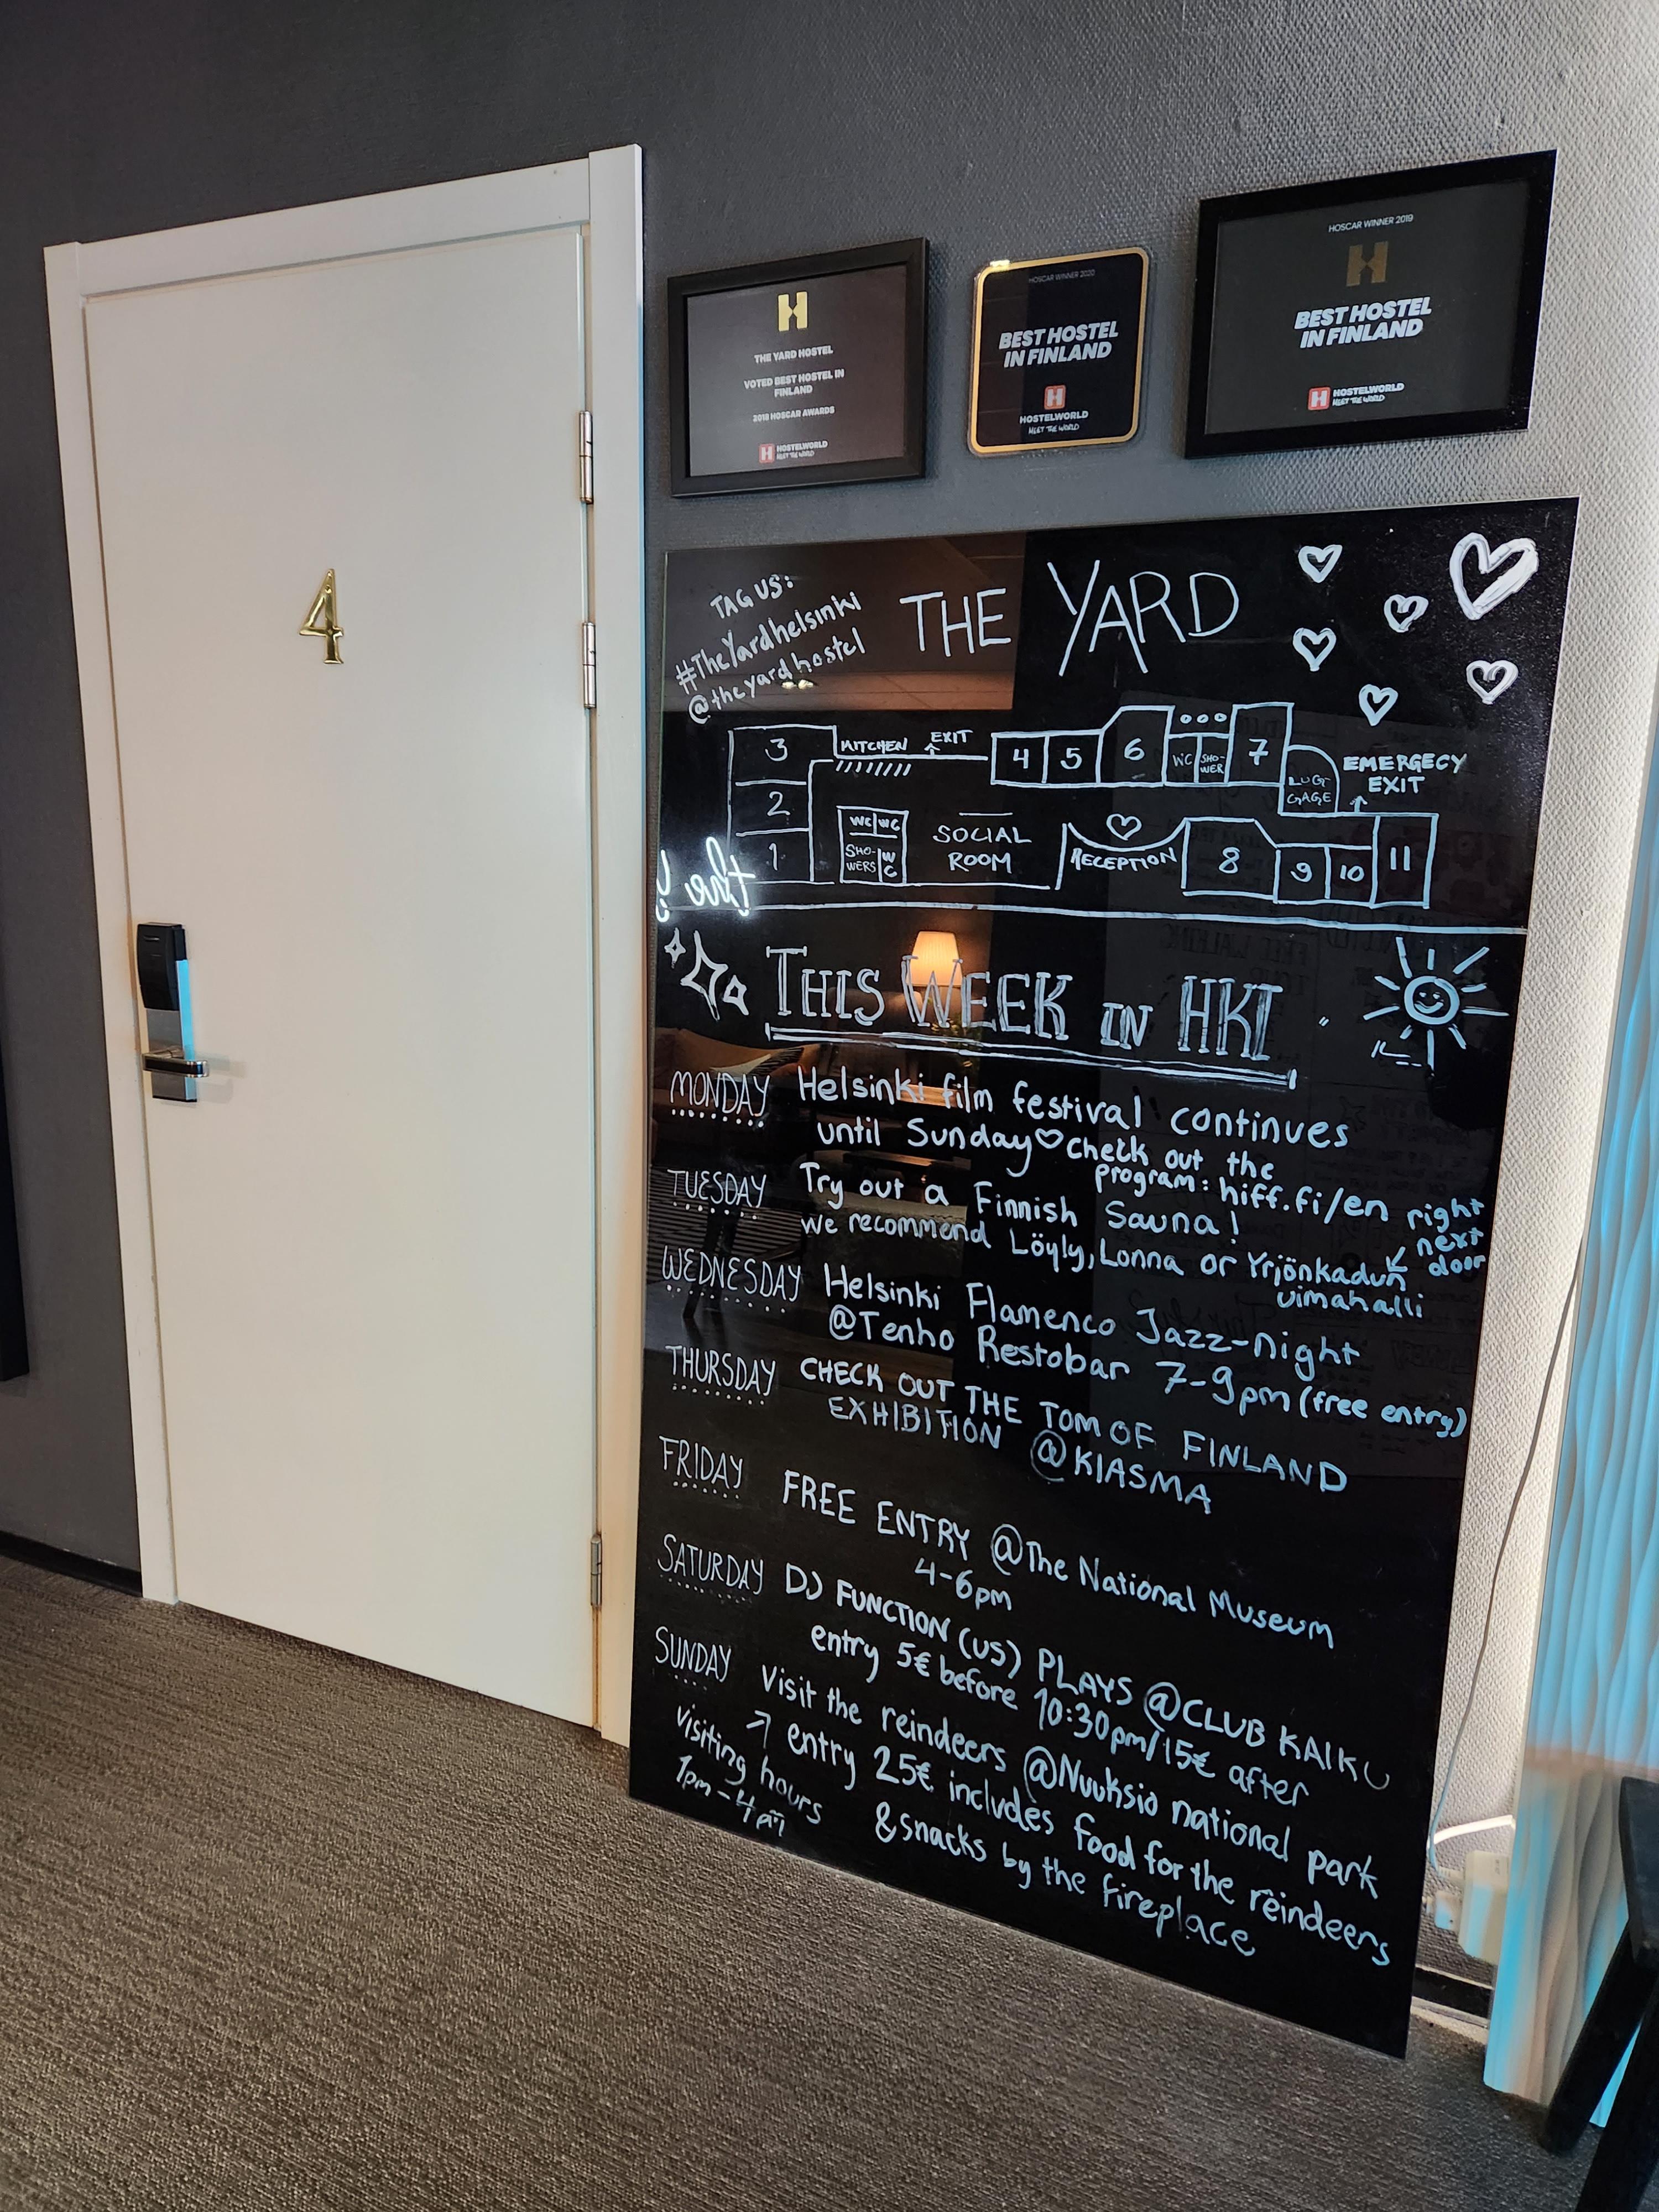 4
THE YARD HOSTEL
VOTED BEST HOSTEL IN
FINLAND
2018 HOSCAR AWARDS
HOSTELWORLD
MEET THE WORLD
HOSCAR WINNER 2020
BEST HOSTEL
IN FINLAND
HOSTELWORLD
MEET THE WORLD
HOSCAR WINNER 2019
BEST HOSTEL
IN FINLAND
HOSTELWORLD
MEET THE WORLD
TAG US:
#TheYardhelsinki
@theyardhostel
THE YARD
3
KITCHEN
EXIT
4
5
6
WC
SHO-
WER
7
LUG-
GAGE
EMERGECY
EXIT
2
1
WC
WC
SHO-
WERS
WC
SOCIAL
ROOM
RECEPTION
8
9
10
11
THIS WEEK IN HKI
MONDAY Helsinki film festival continues
until Sunday♡check out the
program: hiff.fi/en
TUESDAY Try out a Finnish Sauna!
We recommend Löyly, Lonna or Yrjönkadun
uimahalli
right
next
door
WEDNESDAY Helsinki Flamenco Jazz-night
@Tenho Restobar 7-9pm (free entry)
THURSDAY CHECK OUT THE TOM OF FINLAND
EXHIBITION @KIASMA
FRIDAY FREE ENTRY @The National Museum
4-6pm
SATURDAY DJ FUNCTION (US) PLAYS @CLUB KAIKU
entry 5€ before 10:30pm/15€ after
SUNDAY Visit the reindeers @Nuuksio national park
↗ entry 25€ includes food for the reindeers
& snacks by the fireplace
visiting hours
1pm-4pm